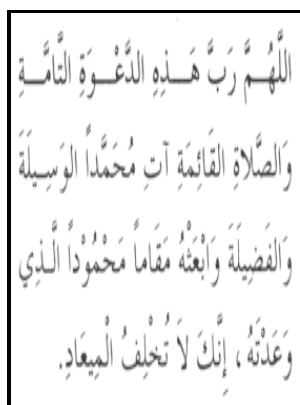 اللَّهُـمَّ رَبَّ هَـــذِهِ الدَّعْــوَةِ التَّامَّــةِ
وَالصَّلاةِ القَائِمَةِ آتِ مُحَمَّداً الوَسِيلَةَ
وَالفَضِيلَةَ وَابْعَثْهُ مَقَاماً مَحْمُوْداً الَّـذِي
وَعَدْتَهُ ، إِنَّكَ لَا تُخْلِفُ الْمِيعَادِ.